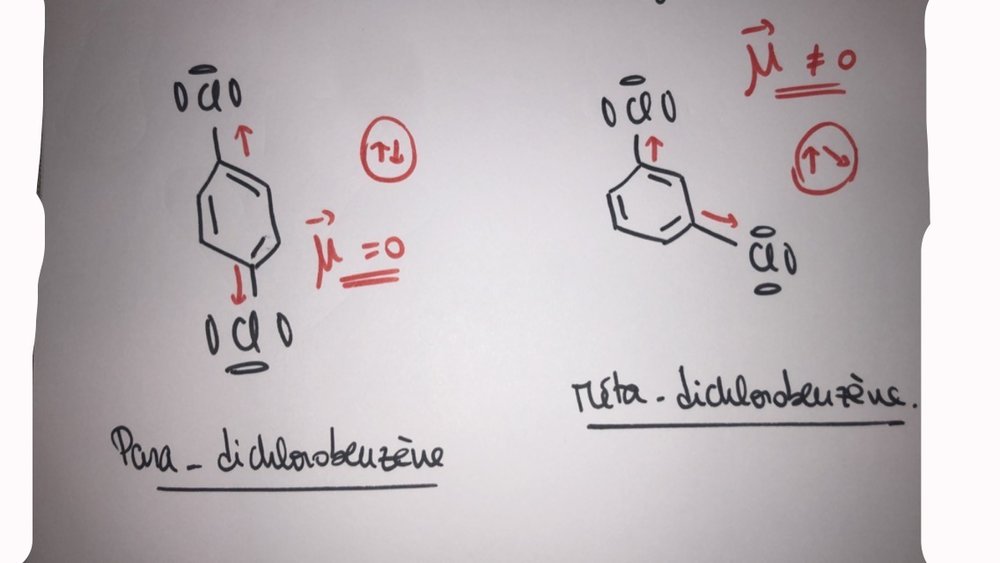 Cl
Cl
Para - dichlorobenzène
μ = 0
Cl
Cl
Méta - dichlorobenzène.
μ ≠ 0